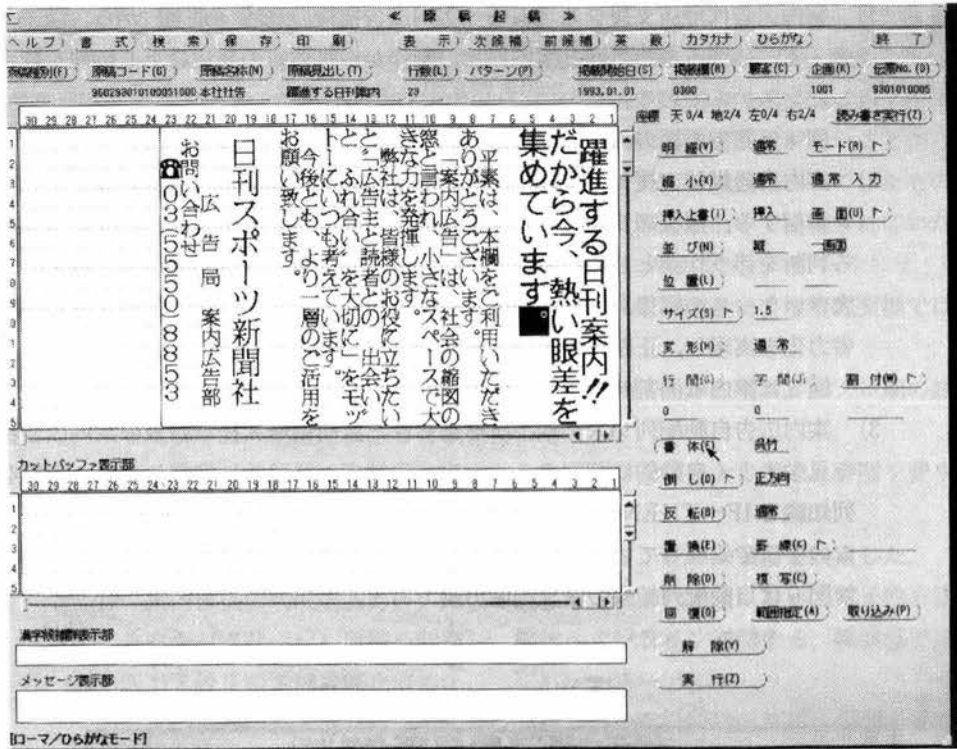 ≪ 原 稿 起 稿 ≫
ヘルプ) 書 式) 検 索) 保 存) 印 刷) 表 示) 次候補) 前候補) 英 数) カタカナ) ひらがな) 終 了)
原稿種別(F) 原稿コード(G) 原稿名称(N) 原稿見出し(T) 行数(L) パターン(P) 掲載開始日(S) 掲載欄(R) 顧客(C) 企画(K) 伝票No.(D)
960293010100051000 本社社告 躍進する日刊案内 29 1993.01.01 0300 1001 9301010005
30 29 28 27 26 25 24 23 22 21 20 19 18 17 16 15 14 13 12 11 10 9 8 7 6 5 4 3 2 1
躍進する日刊案内!!
だから今、熱い眼差を
集めています。
平素は、本欄をご利用いただき
ありがとうございます。
「案内広告」は、社会の縮図の
窓と言われ、小さなスペースで大
きな力を発揮します。
弊社は、皆様のお役に立ちたい
と「広告主と読者との〝出会い〟
と〝ふれ合い〟を大切に」をモッ
トーに、いつも考えています。
今後とも、より一層のご活用を
お願い致します。
日刊スポーツ新聞社
広 告 局 案内広告部
お問い合わせ
☎03(5550)8853
座標 天0/4 地2/4 左0/4 右2/4 読み書き実行(Z)
明 細(Y) 通常 モード(R)
縮 小(X) 通常 通常入力
挿入上書(I) 挿入 画 面(U)
並 び(N) 縦 一画面
位 置(L)
サイズ(S) 1.5
変 形(H) 通常
行 間(G) 字 間(J) 割 付(W)
0 0
書 体(F) 呉竹
倒 し(O) 正方向
反 転(B) 通常
置 換(E) 罫 線(K)
削 除(D) 複 写(C)
回 復(Q) 範囲指定(A) 取り込み(P)
解 除(Y)
実 行(Z)
カットバッファ表示部
30 29 28 27 26 25 24 23 22 21 20 19 18 17 16 15 14 13 12 11 10 9 8 7 6 5 4 3 2 1
漢字候補群表示部
メッセージ表示部
[ローマ/ひらがなモード]